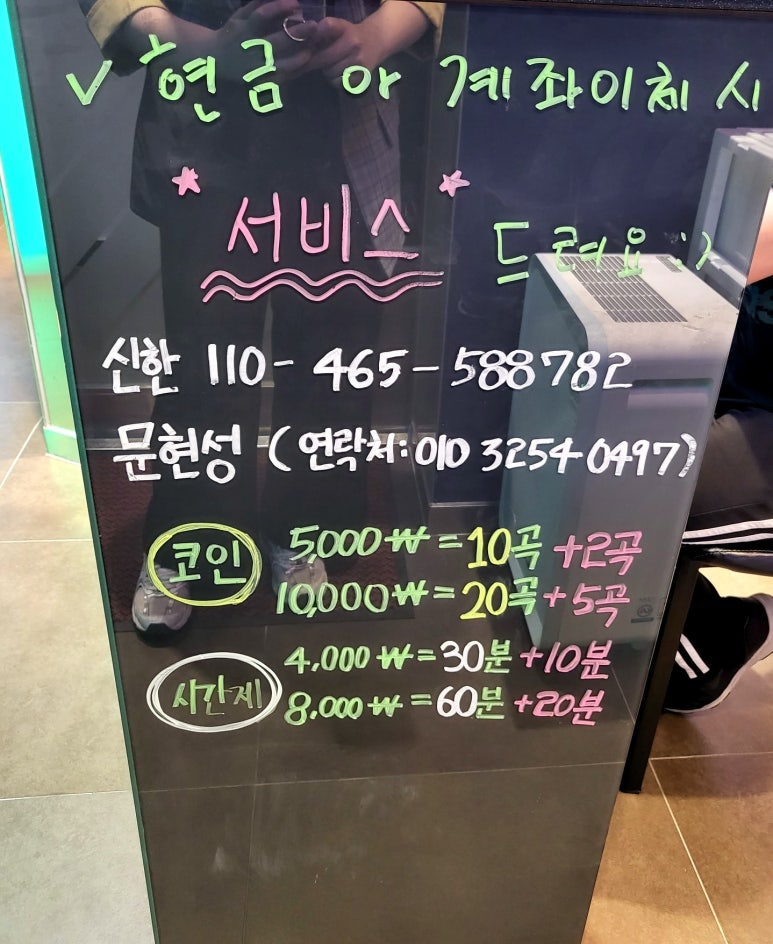 ✓ 현금 or 계좌이체 시
*서비스* 드려요 :)
신한 110-465-588782
문현성 (연락처: 010 3254 0497)
코인 5,000₩=10곡+2곡
10,000₩=20곡+5곡
시간제 4,000₩=30분+10분
8,000₩=60분+20분